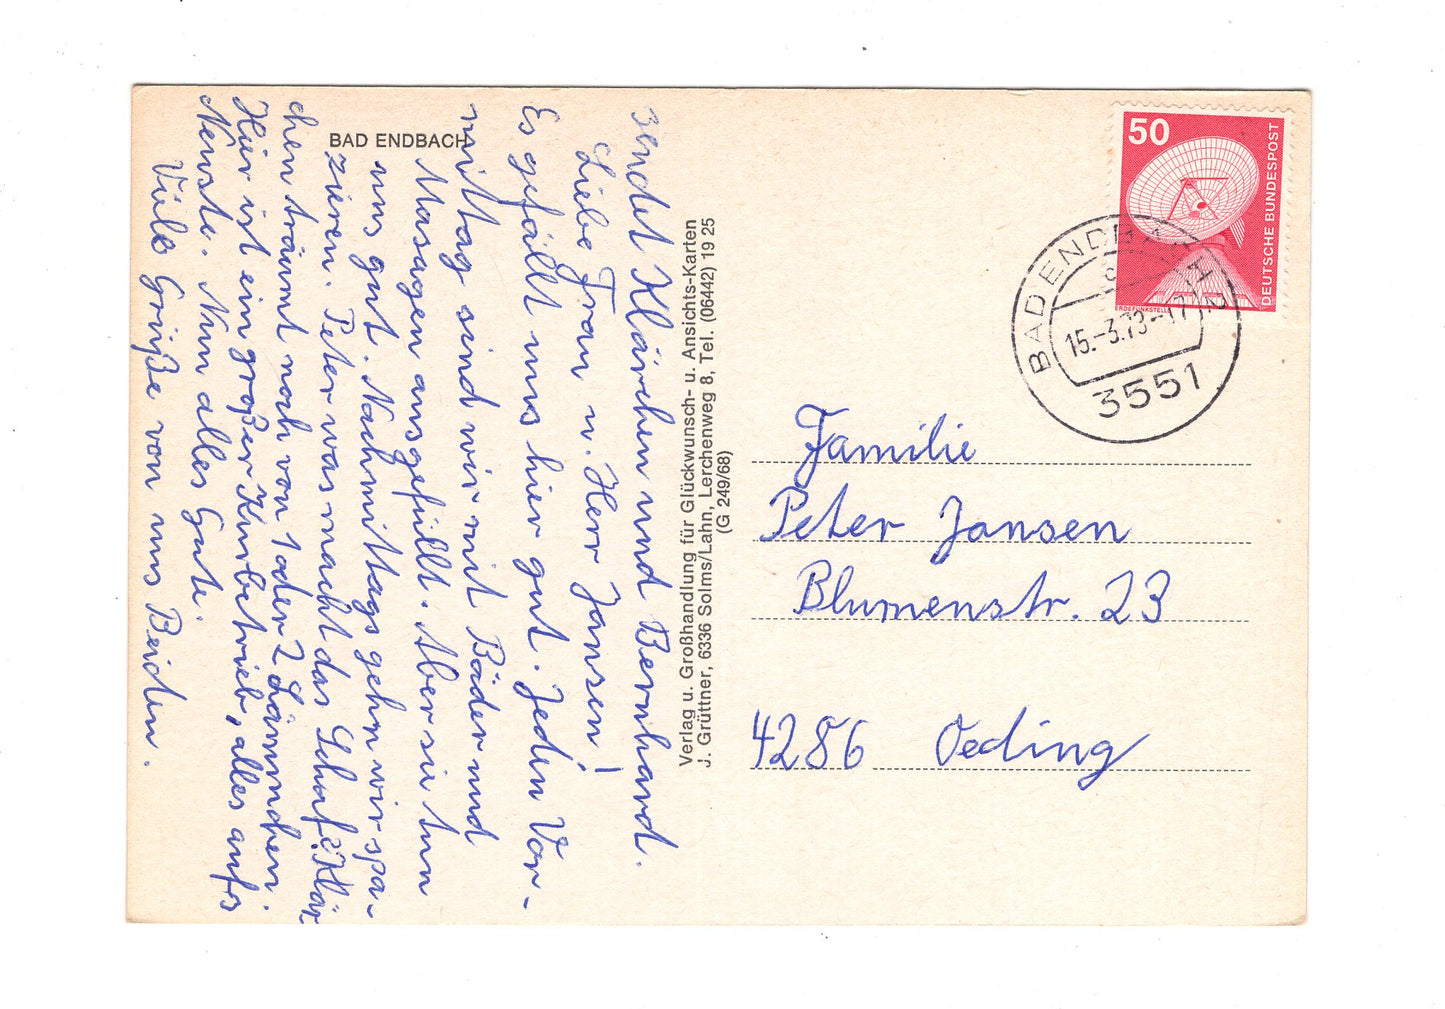 BAD ENDBACH
sendet Klärchen und Bernhard.
Liebe Frau u. Herr Jansen!
Es gefällt uns hier gut. Jeden Vor-
mittag sind wir mit Bäder und
Masagen ausgefüllt. Aber sie tun
uns gut. Nachmittags gehn wir spa-
zieren. Peter was macht das Schaf? Klär
chen träumt noch von 1 oder 2 Lämmchen.
Hier ist ein großer Kurbetrieb, alles aufs
Neuste. Nun alles Gute.
Viele Grüße von uns Beiden.
Verlag u. Großhandlung für Glückwunsch- u. Ansichts-Karten
J. Grüttner, 6336 Solms/Lahn, Lerchenweg 8, Tel. (06442) 19 25
(G 249/68)
50
DEUTSCHE BUNDESPOST
ERDEFUNKSTELLE
BAD ENDBACH 2
c
15.-3.73-17
3551
Familie
Peter Jansen
Blumenstr. 23
4286 Oeding